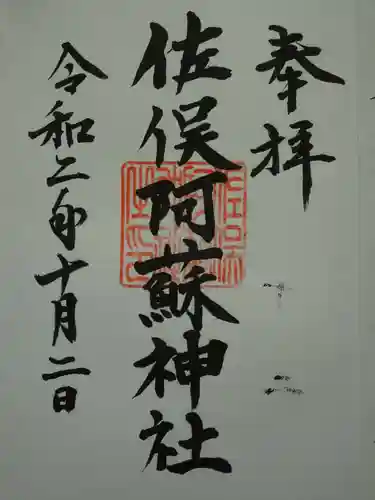 奉拝
佐俣阿蘇神社
令和二年十月二日